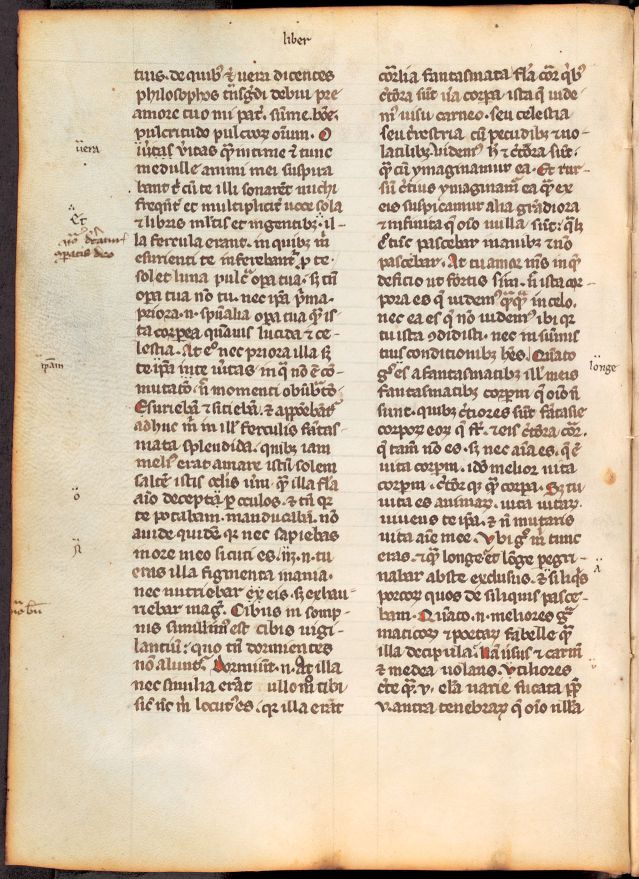 liber
tius. de quibꝰ ⁊ uera dicentes
philosophos t̄nsg̃di debui pre
amore tuo mi pat̃. sūme bōe.
pulcritudo pulcroꝝ om̄um. O
ũitas ũitas q̃m intime ⁊ tunc
medulle animi mei suspira
bant t̃ cū te illi sonarēt michi
freq̃nt̃ et multiplicit̃ uoce sola
⁊ libris ml̃tis et ingentibꝫ. il-
la fercula erant. in quibꝫ m̃
esurienti te inferebant̃ ꝓ te
sol et luna pulc̃ oꝑa tua. sꝫ tn̄
oꝑa tua nō tu. nec ip̄a p̃ma.
priora .n. sp̄ualia oꝑa tua q̃ is
ta corꝑea quāuis lucida ⁊ ce-
lestia. At eḡ nec priora illa sꝫ
te ip̄am te ũitas in q̄ nō ē cō-
mutatō. n̄ momenti obūbratō
Esurieba̅ ⁊ sitieba̅. ⁊ appōebāt̃
adhuc m̃ in ill̃ ferculis fantas-
mata splendida. quibꝫ iam
meliꝰ erat amare istū solem
saltē istis oculis uerū. q̃ illa fl̃a
aīo decepto ꝑ oculos. ⁊ tn̄ qr
te putabam. manducaba̅. nō
auide quidē. qr nec sapiebas
in ore meo sicuti es. nꝫ .n. tu
eras illa figmenta inania.
nec nutriebar ex eis. sꝫ exhau-
riebar mag̃. Cibus in somp-
nis simillimꝰ est cibis uigi-
lantiū. quo tn̄ dormientes
nō alunt̃. Dormiūt .n. At illa
nec similia erāt ullo mō tibi
sic̃ nc̄ m̃ locutꝰ es. qr illa erāt
cōrlia fantasmata fl̃a cōr q̃bꝰ
c̃tōra sūt ũa corꝑa. ista que uide
mꝰ uisu carneo. seu celestia
seu t̃restria cū pecudibꝫ ⁊ uo-
latilibꝫ uidemꝰ h̄ ⁊ c̃tōra sūt.
q̃m cū ymaginamur ea. Et rur-
sū c̃tius ymaginam̃ ea q̃ ex
eis suspicamur alia grādiora
⁊ infinita q̄ oīo nulla sūt. q̃lib
ego tūc pascebar inanibꝫ ⁊ nō
pascebar. At tu amor mꝰ in q̄
deficio ut fortis sim. n̄ ista cor-
pora es q̄ uidemꝰ q̄q̃ in celo.
nec ea es q̄ nō uidemꝰ ibi qr
tu ista ↄdidisti. nec in sūmis
tuis conditionibꝫ hēs. Quāto
g̊ es a fantasmatibꝫ ill̃ meis
fantasmatibꝫ corporū q̄ oīo n̄
sunt. quibꝫ c̃tiores sūt fantasie
corpoꝝ eoꝝ q̄ sūt. ⁊ eis c̃tiōra cōr.
q̄ tam̄ nō es. sꝫ nec aīa es. q̄ ē
uita corporū. ideo melior uita
corporū. c̃tior qꝫ q̃ corpora. Sꝫ tu
uita es animaꝝ. uita uitaꝝ.
uiuens te ip̄a. ⁊ n̄ mutaris
uita aīe mee. Vbi g̊ m̃ tunc
eras. ⁊ q̃ longe. et lōge peregri-
nabar abs te exclusus. ⁊ a siliq̃s
porcoꝝ quos de siliquis pasce-
bam. Quāto .n. meliores grā
maticoꝝ ⁊ poetaꝝ fabelle q̃
illa decipula. Nā ũsus ⁊ carm̃
⁊ medea uolans. Vtiliores
c̃te q̃ .v. elem̃ta uarie fucata ꝓpt̃
.v. antra tenebraꝝ q̄ oīo nulla
uera
Et
ip̄am
longe